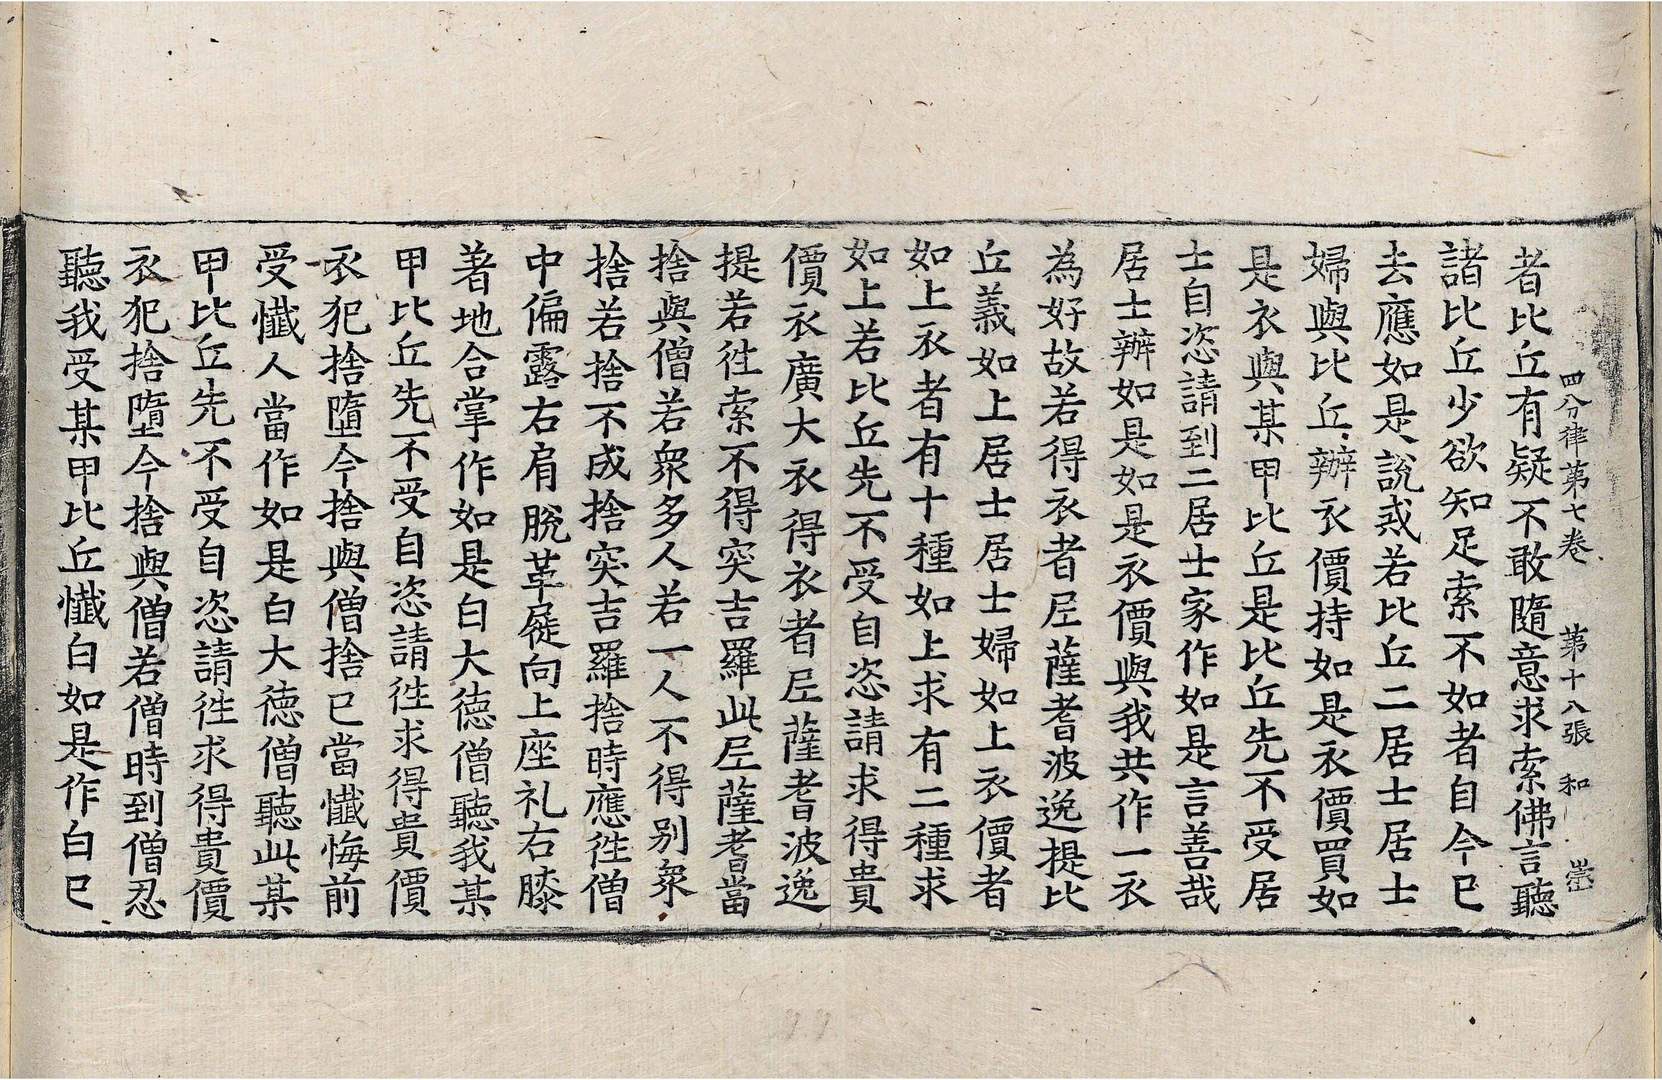 四分律第七卷 第十八張 和
者比丘有疑不敢隨意求索佛言聽
諸比丘少欲知足索不如者自今已
去應如是說戒若比丘二居士居士
婦與比丘辦衣價持如是衣價買如
是衣與某甲比丘是比丘先不受居
士自恣請到二居士家作如是言善哉
居士辦如是如是衣價與我共作一衣
為好故若得衣者尼薩耆波逸提比
丘義如上居士居士婦如上衣價者
如上衣者有十種如上求有二種求
如上若比丘先不受自恣請求得貴
價衣廣大衣得衣者尼薩耆波逸
提若徃索不得突吉羅此尼薩耆當
捨與僧若衆多人若一人不得別衆
捨若捨不成捨突吉羅捨時應徃僧
中偏露右肩脫革屣向上座礼右膝
著地合掌作如是白大德僧聽我某
甲比丘先不受自恣請徃求得貴價
衣犯捨墮今捨與僧捨已當懺悔前
受懺人當作如是白大德僧聽此某
甲比丘先不受自恣請徃求得貴價
衣犯捨墮今捨與僧若僧時到僧忍
聽我受某甲比丘懺白如是作白已